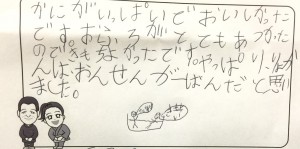 かにがいっぱいでおいしかった
です。おふろがとてもあつかた
のできもちよかったです。やっぱりりょか
んはおんせんが一ばんだと思い
ました。